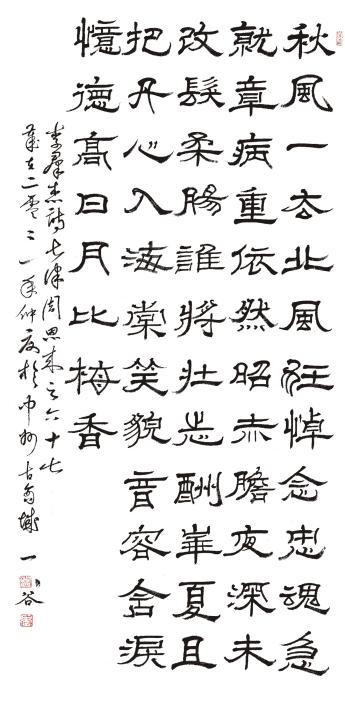 秋風一去北風狂悼念忠魂急
就章病重依然昭赤膽夜深未
改髮柔腸誰將壯志酬華夏且
把丹心入海棠笑貌音容含淚
憶德高日月比梅香
李群杰詩七律周恩來之六十七
歲在二零二一年仲夏於中州古商城 一谷